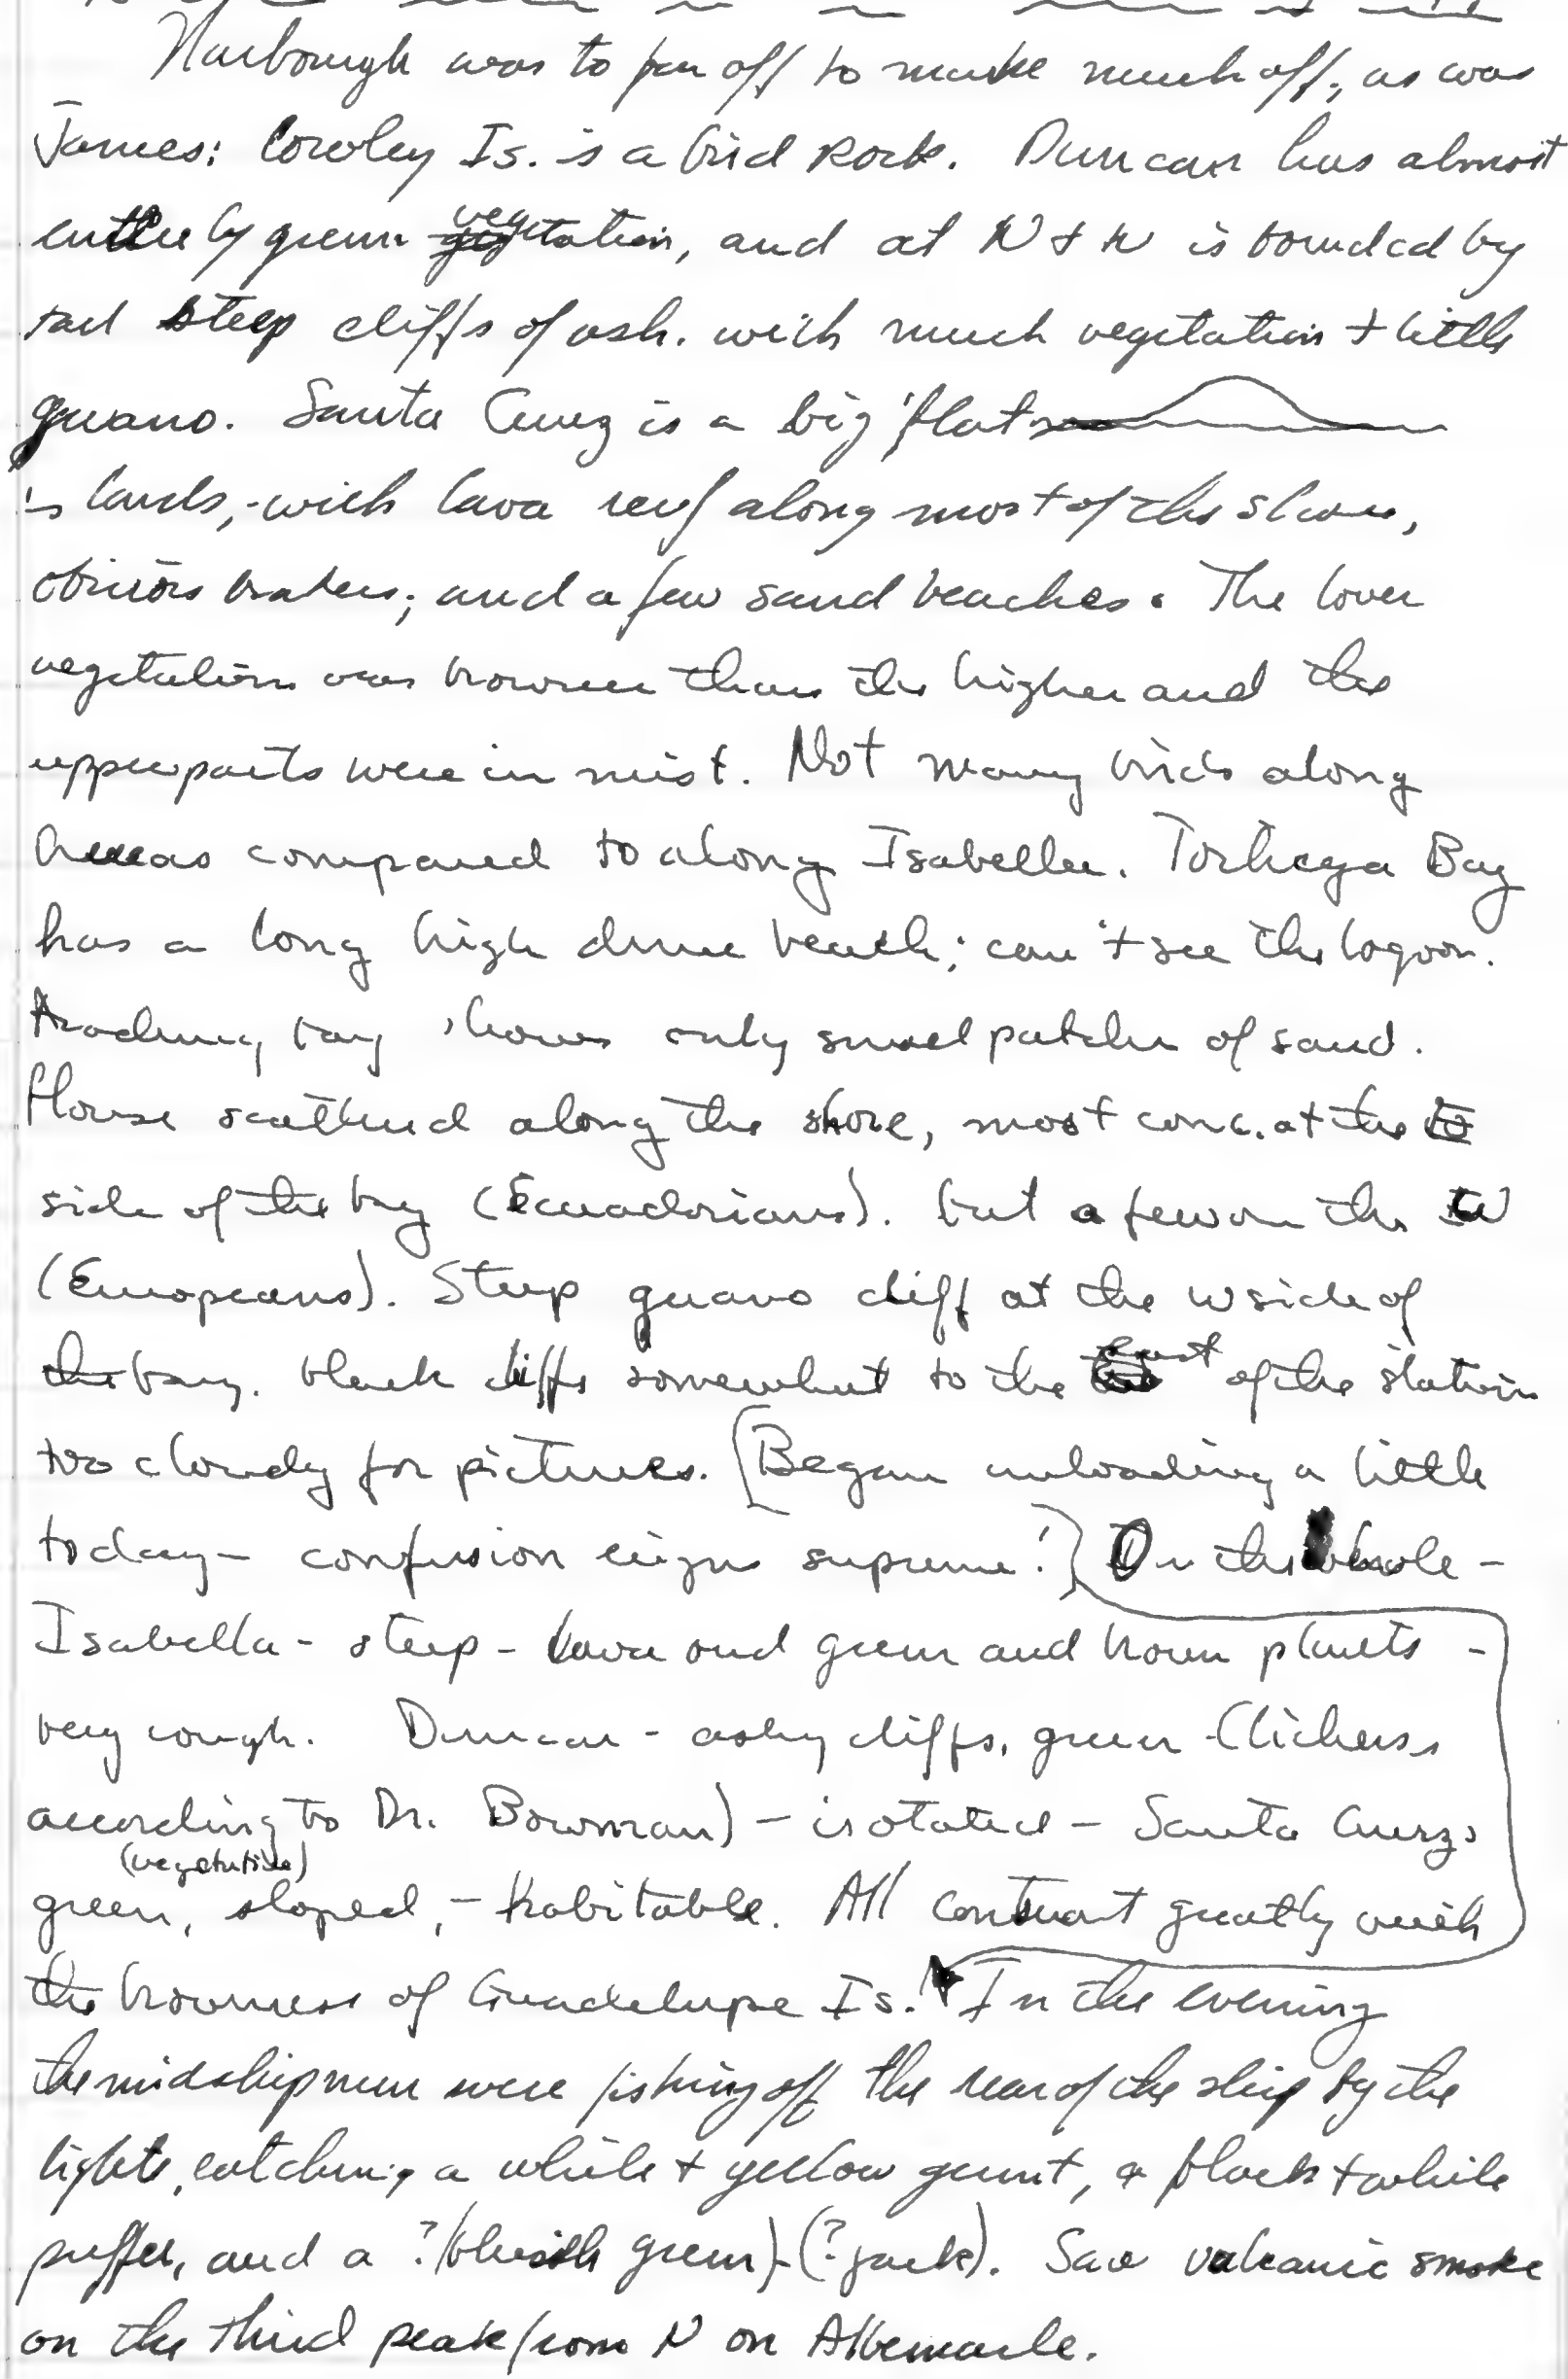 Narborough was to far off to make much off, as was
James: Cowley Is. is a bird rock. Duncan has almost
entirely green vegetation, and at N + W is bounded by
tall steep cliffs of ash. with much vegetation + little
guano. Santa Cruz is a big flat
islands, - with lava reef along most of the shore,
obvious breakers; and a few sand beaches. The lower
vegetation was browner than the higher and the
upper parts were in mist. Not many birds along
here as compared to along Isabella. Tortuga Bay
has a long high dune beach; can't see the lagoon.
Academy bay shows only small patches of sand.
House scattered along the shore, most conc. at the
side of the bay (Ecuadorians). but a few on the W
(Europeans). Steep guano cliff at the W side of
the bay. black cliffs somewhat to the east of the station
too cloudy for pictures. [Began unloading a little
today - confusion reigns supreme!] On the whole -
Isabella - steep - lava and green and brown plants -
very rough. Duncan - ashy cliffs, green (lichens
according to Dr. Bowman) - isolated - Santa Cruz:
(vegetative)
green, sloped, - habitable. All contrast greatly with
the brownness of Guadelupe Is. In the evening
the midshipmen were fishing off the rear of the ship by the
lights, catching a white + yellow grunt, a black + white
puffer, and a ? (bluish green) - (? jack). Saw volcanic smoke
on the third peak from N on Albemarle.